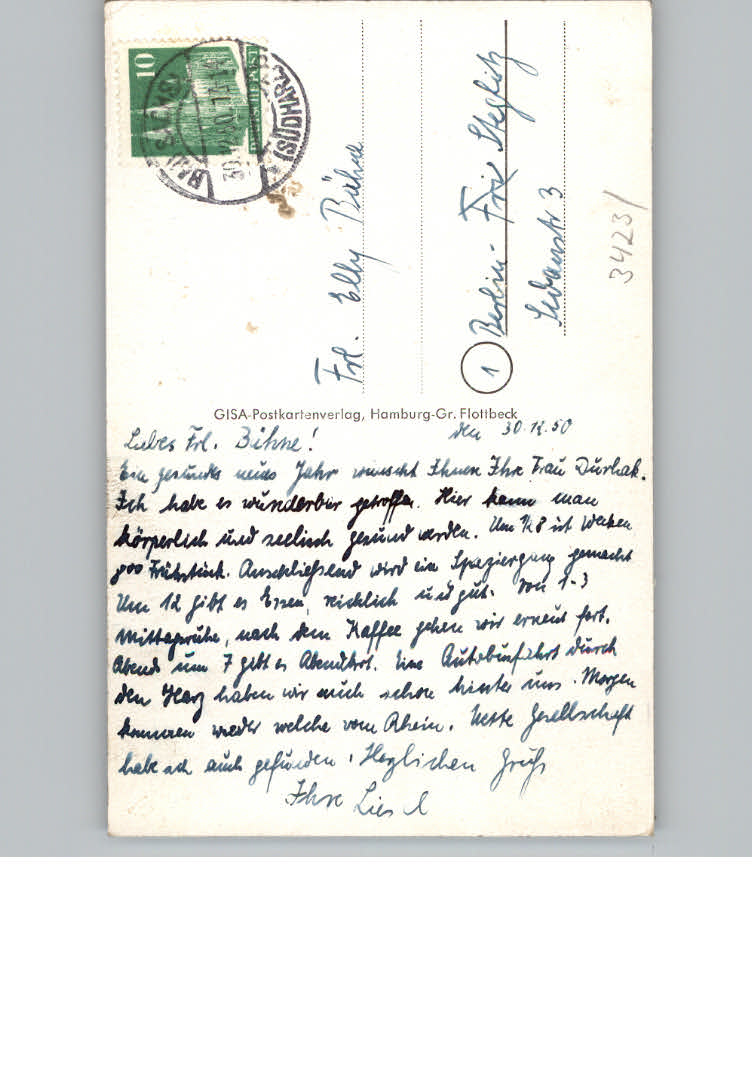 10
BAD SACHSA (SÜDHARZ)
30.12.50
Frl. Elly Bühne
1 Berlin- Frie Steglitz
Sedanstr 3
34231
GISA-Postkartenverlag, Hamburg-Gr. Flottbeck
den 30.12.50
Liebes Frl. Bühne!
Ein gesundes neues Jahr wünscht Ihnen Ihre Frau Durhak.
Ich habe es wunderbar getroffen. Hier kann man
körperlich und seelisch gesund werden. Um 1/2 8 ist Wecken
900 Frühstück. Anschließend wird ein Spaziergang gemacht
Um 12 gibt es Essen, reichlich und gut. Von 1-3
Mittagsruhe, nach dem Kaffee gehen wir erneut fort.
Abend um 7 gibt es Abendbrot. Eine Autobusfahrt durch
den Harz haben wir auch schon hinter uns. Morgen
kommen wieder welche vom Rhein. Nette Gesellschaft
habe ich auch gefunden. Herzlichen Gruß
Ihre Liesl